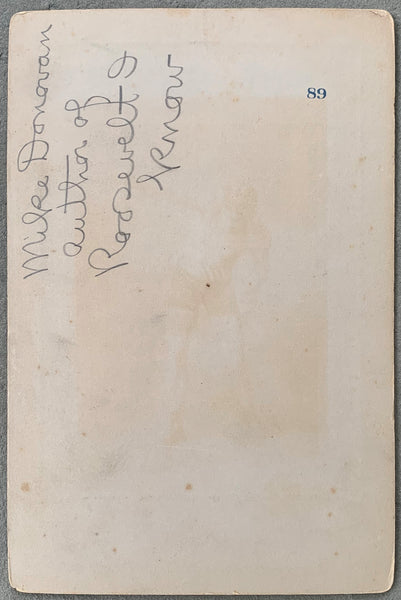 Mike Donovan
author of
Roosevelt I
know
89